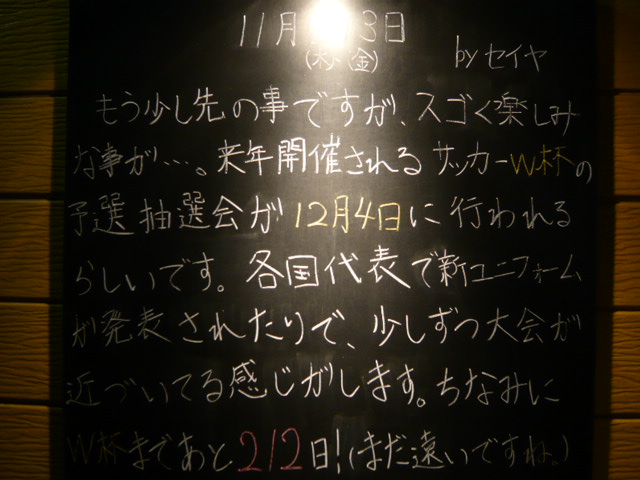 11月 3日
(木)(金) by セイヤ
もう少し先の事ですが、スゴく楽しみ
な事が…。来年開催されるサッカーW杯の
予選抽選会が12月4日に行われる
らしいです。各国代表で新ユニフォーム
が発表されたりで、少しずつ大会が
近づいてる感じがします。ちなみに
W杯まであと212日!(まだ遠いですね。)